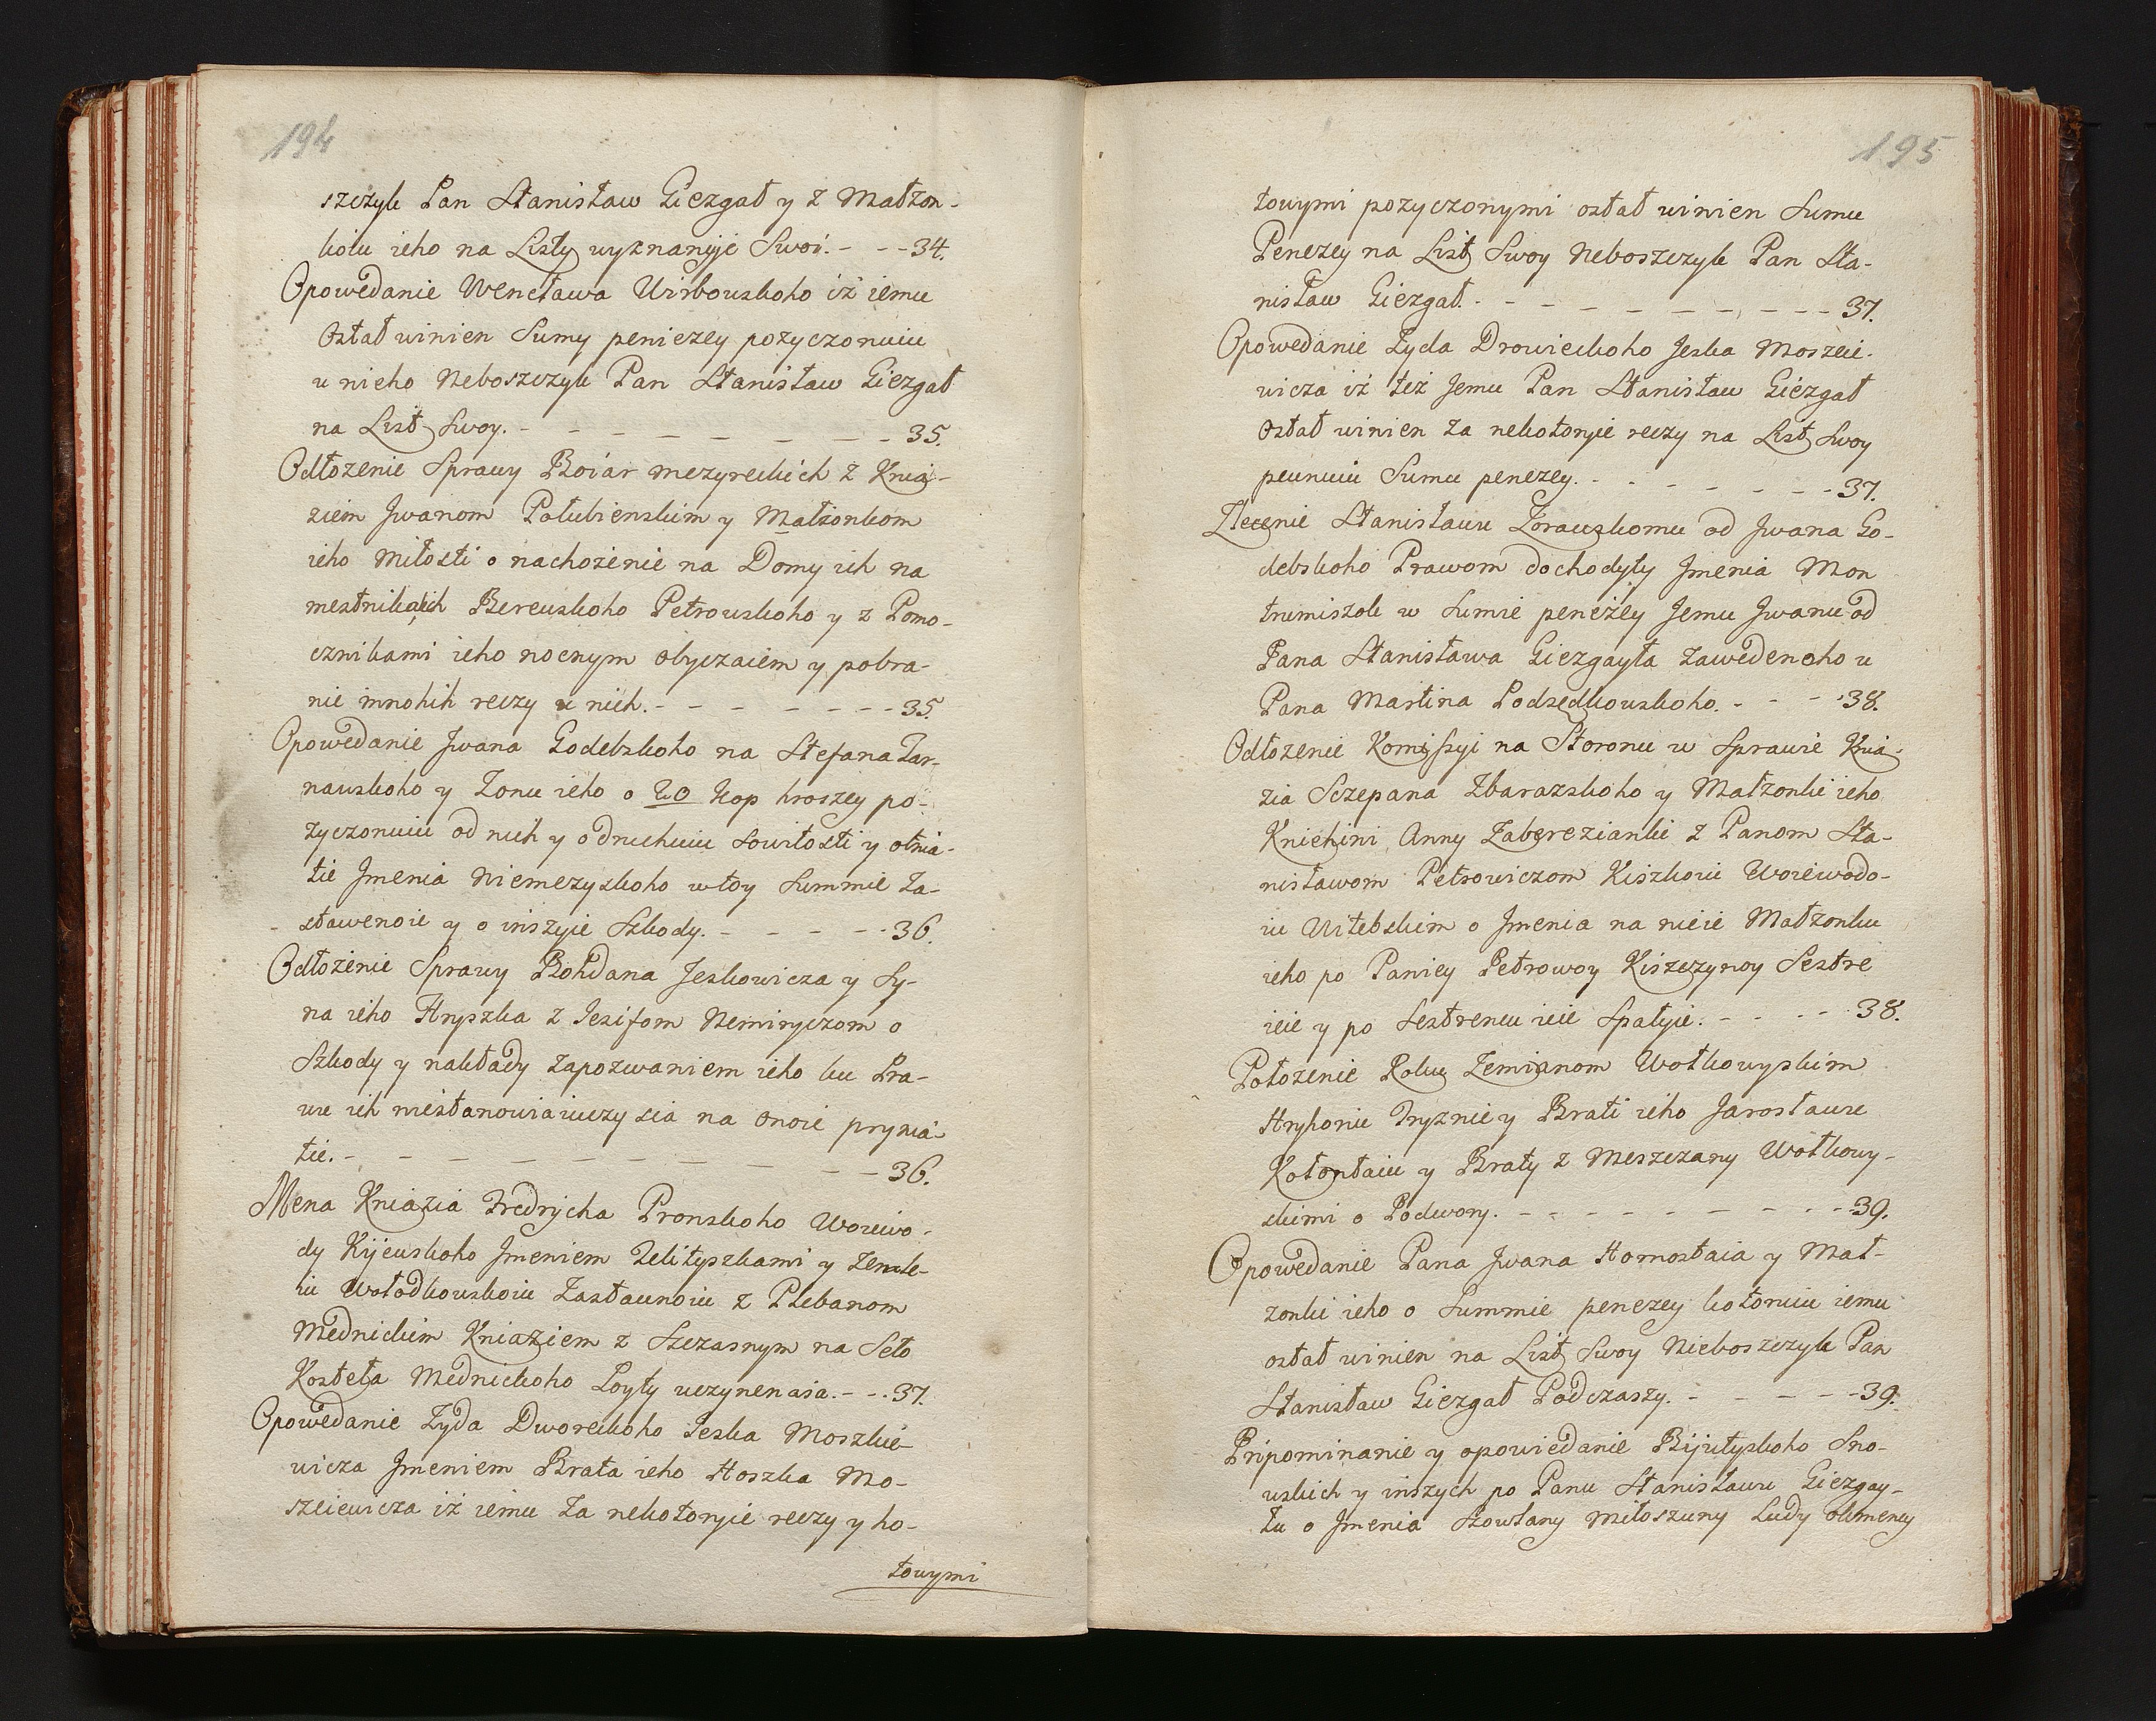 194
szczyk Pan Stanisław Giezgał y z Małzon-
koiu ieho na Listy wyznanyje Swoi. - - - 34.
Opowedanie Wencława Wirbouskoho iż iemu
Ostał winien Sumy peniezey pożyczonuiu
u nieho Neboszczyk Pan Stanisław Giezgał
na List Swoy. - - - - - - - - 35.
Odłozenie Sprawy Boiar mezyreckich z Knia-
ziem Jwanom Połubienskim y Małżonkom
ieho Miłosti o nachożenie na Domy ich na
mestnikoich Bereuskoho Petrouskoho y z Pomo-
cznikami ieho nocnym obyczaiem y pobra-
nie mnohih reczy u nich. - - - - - - - 35.
Opowedanie Jwana Godebskoho na Stefana Tar-
nauskoho y Zonu ieho o 20 kop hroszey po-
zyczonuiu od nich y o druhuiu sowitosti y otnia-
tie Jmenia Niemezyskoho w toy Summie Za-
stawenoie y o inszyie Szkody. - - - - - 36.
Odłożenie Sprawy Bohdana Jeskowicza y Sy-
na ieho Hryszka z Jesifom Nemiryczom o
Szkody y nakłady zapozwaniem ieho ku Pra-
wu ich niestanowiaiuczy sia na onoie prynia-
tie. - - - - - - - - - - - 36.
Mena Kniazia Fredrycha Pronskoho Woiewo-
dy Kijeuskoho Jmeniem Zelityszkami y Zemle-
iu Wołodkouskoiu Zastaunoiu z Plebanom
Mednickim Kniaziem z Szczasnym na Seło
Kosteła Mednickoho Loyty uczynenaia. - - . 37.
Opowedanie Zyda Dworeckoho Jeska Moszkie-
wicza Jmeniem Brata ieho Hoszka Mo-
szeiewicza iż iemu za nekotoryie reczy y ho-
towymi
195
towymi pozyczonymi ostał winien Sumu
Penezey na List Swoy Neboszczyk Pan Sta-
nisław Giezgał. - - - - - - - - - - 37.
Opowedanie Zyda Drowieckoho Jeska Moszeie-
wicza iż też Jemu Pan Stanisław Giezgał
Ostał winien za nekotoryie reczy na List Swoy
peunuiu Sumu penezey. - - - - - - - 37.
Zlecenie Stanisławu Zorauskomu od Jwana Go-
debskoho Prawom dochodyty Jmenia Mon
trumiszok w Sumie peneżey Jemu Jwanu od
Pana Stanisława Giezgayła zawedenoho u
Pana Martina Podsedkouskoho. - - - 38.
Odłozenie Komissyi na Storonu w Sprawie Knia-
zia Sczepana Zbarazskoho y Małzonki ieho
Kniehini Anny Zaberezianki z Panom Sta-
nisławom Petrowiczom Kiszkoiu Woiewodo-
iu Witebskim o Jmenia na nieie Małzonku
ieho po Paniey Petrowoy Kiszczynoy Sestre
ieie y po Sestrencu ieie Spałyie. - - - - 38.
Położenie Roku Zemianom Wołkowyskim
Hryhoriu Tryznie y Brati ieho Jarosławu
Kołontaiu y Braty z Meszczany Wołkowy-
skimi o Podwory. - - - - - - - - - 39.
Opowedanie Pana Jwana Hornostaia y Mał-
zonki ieho o Summie penezey kotoruiu iemu
ostał winien na List Swoy Nieboszczyk Pan
Stanisław Giezgał Podczaszy. - - - - - 39.
Pripominanie y opowiedanie Bijutyskoho Sno-
uskich y inszych po Panu Stanisławu Giezgay-
łu o Jmenia Szowłany Miłoszuny Ludy okmeney